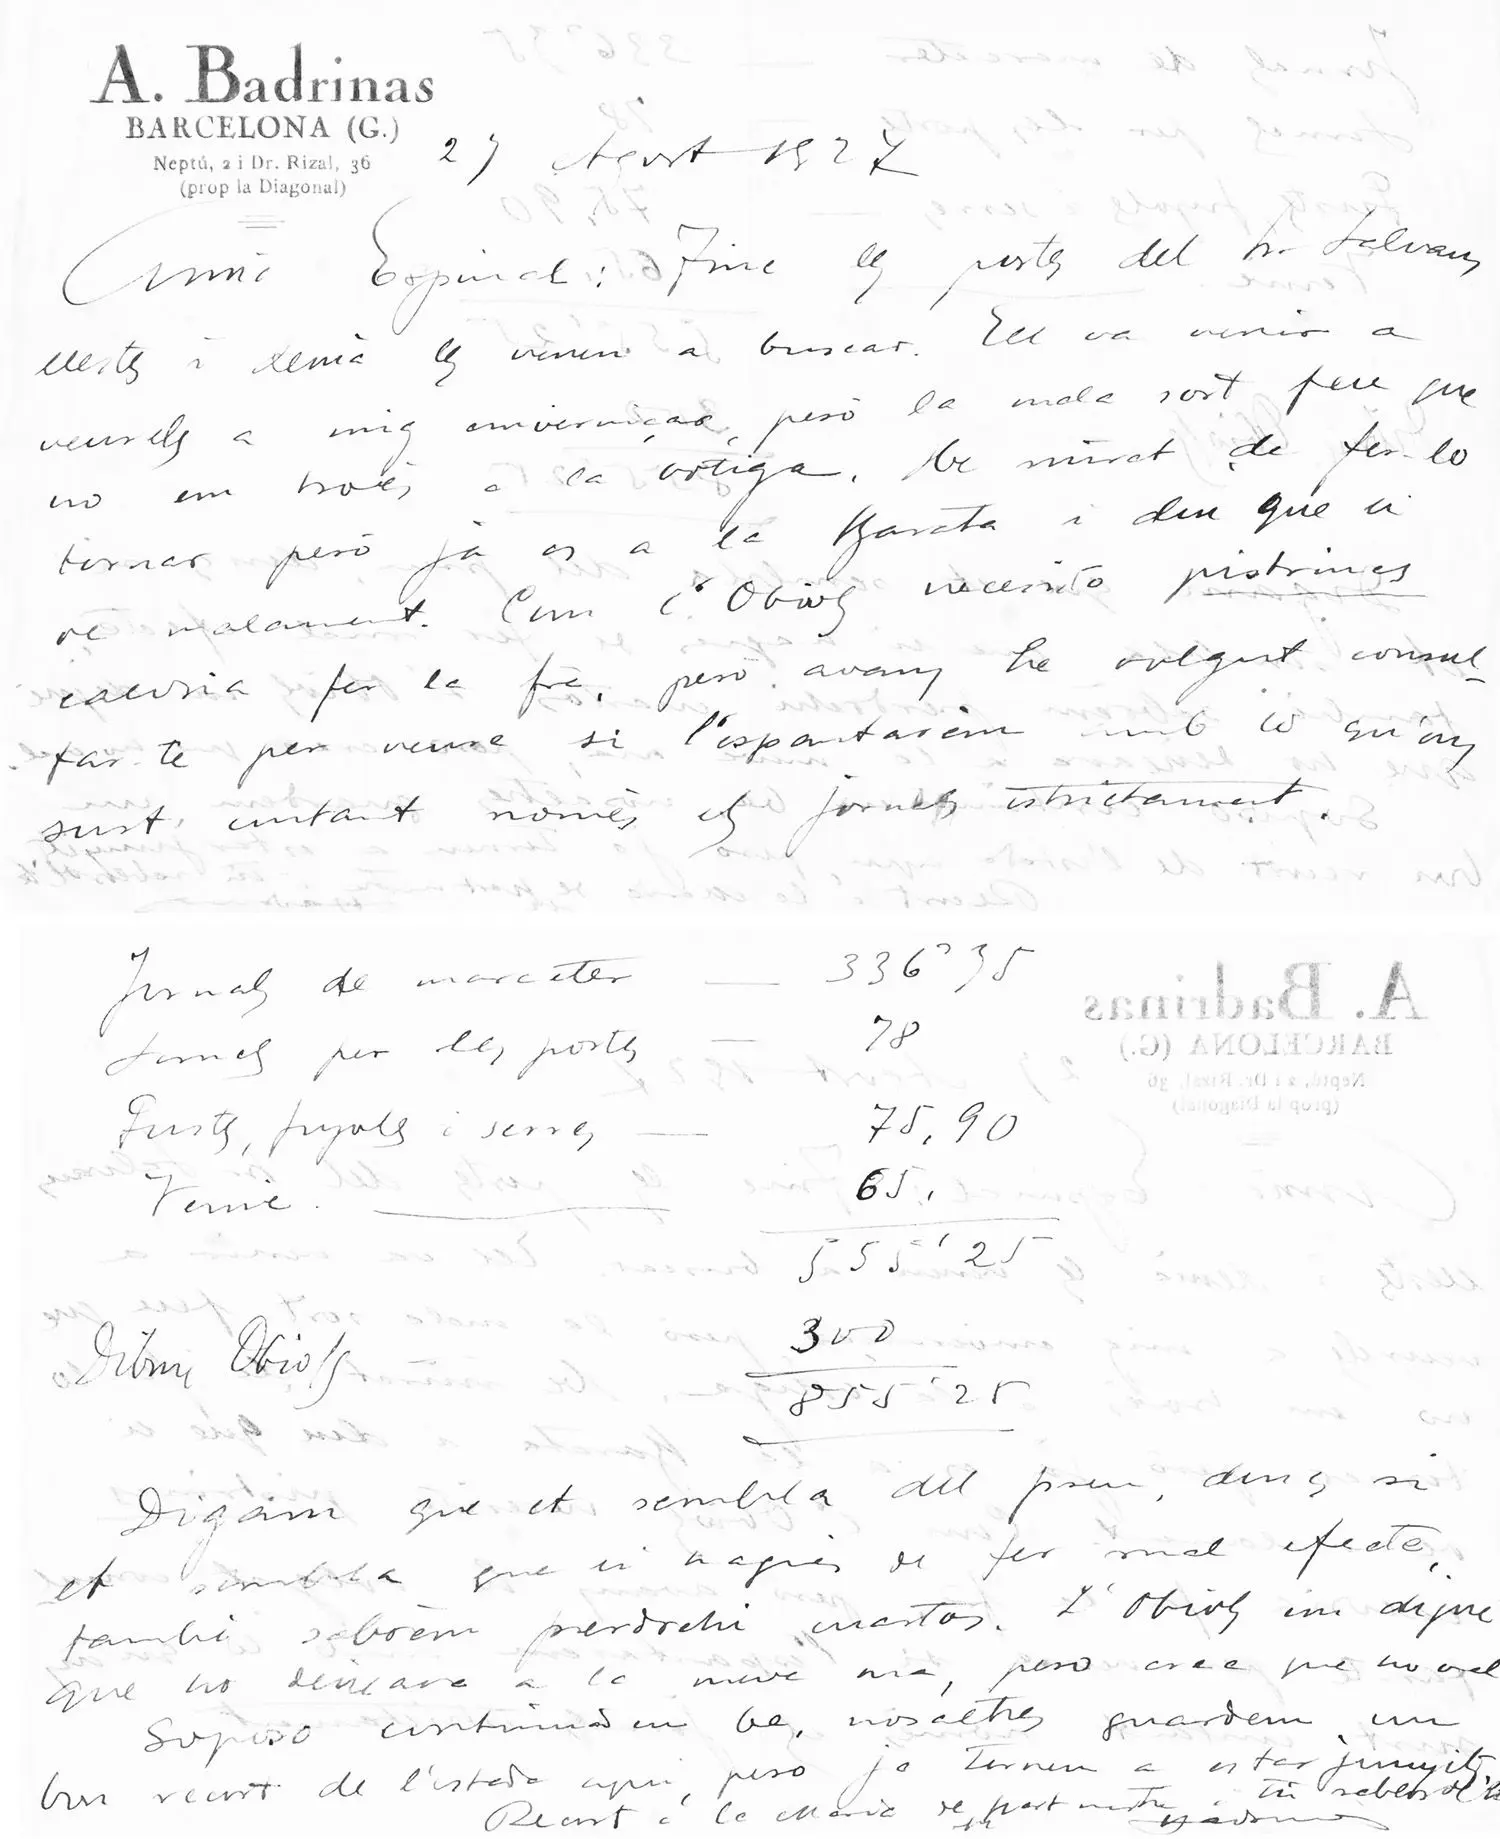 A. Badrinas
BARCELONA (G.)
Neptú, 2 i Dr. Rizal, 36
(prop la Diagonal)
27 Agost 1927
Amic Espinal: Tinc les portes del Sr. Salvans
llestes i demà les venen a buscar. Ell va venir a
veurels a mig enverniçar, però la mala sort feu que
no em trovés a la botiga. He mirat de fer-lo
tornar però ja es a la Barata i diu que li
ve malament. Com l'Obiols necesita pistrines
caldria fer la fra. però avans he volgut consul-
tar-te per veure si l'espantarem amb lo qu'ens
surt, contant només els jornals estrictament.
Jornals de marceter — 336'35
Jornals per les portes — 78
Fusta, fuyola i serres — 75,90
Vernic. 65,
555'25
Dibuix Obiols 300
855'25
Digam que et sembla del preu, doncs si
et sembla que li hagués de fer mal efecte,
també sabrèm perdrehi cuartos. L'Obiols em digué
que ho deixava a la meva ma, pero crec que no val
Soposo continuàu be, nosaltres guardem un
bon recort de l'estada aqui, pero ja tornem a estar junyits
Recort a la Maria de part nostra i tu sabes de
Badrinas